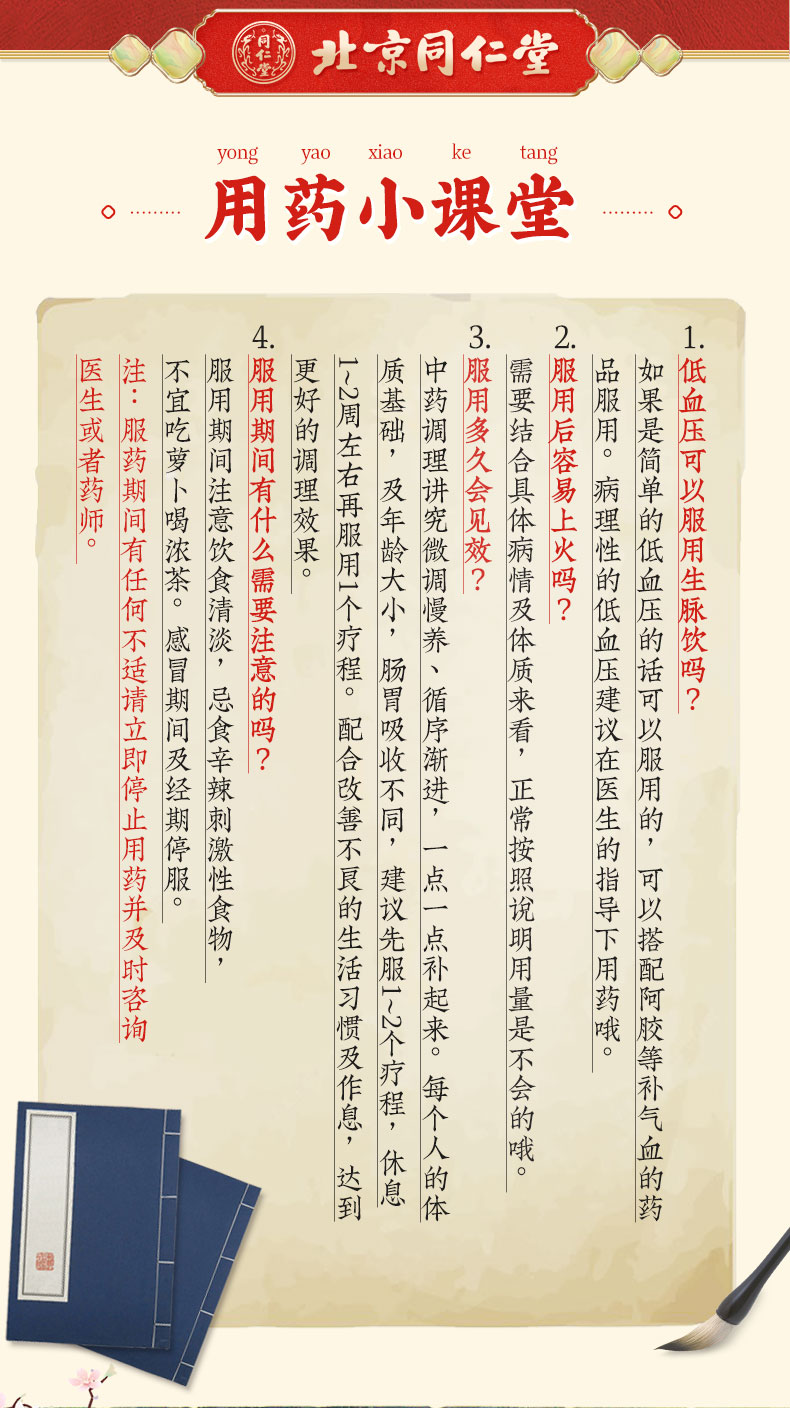 同仁堂
北京同仁堂
yong yao xiao ke tang
用药小课堂
1.
低血压可以服用生脉饮吗？
如果是简单的低血压的话可以服用的，可以搭配阿胶等补气血的药
品服用。病理性的低血压建议在医生的指导下用药哦。
2.
服用后容易上火吗？
需要结合具体病情及体质来看，正常按照说明用量是不会的哦。
3.
服用多久会见效？
中药调理讲究微调慢养、循序渐进，一点一点补起来。每个人的体
质基础，及年龄大小，肠胃吸收不同，建议先服1~2个疗程，休息
1~2周左右再服用1个疗程。配合改善不良的生活习惯及作息，达到
更好的调理效果。
4.
服用期间有什么需要注意的吗？
服用期间注意饮食清淡，忌食辛辣刺激性食物，
不宜吃萝卜喝浓茶。感冒期间及经期停服。
注：服药期间有任何不适请立即停止用药并及时咨询
医生或者药师。